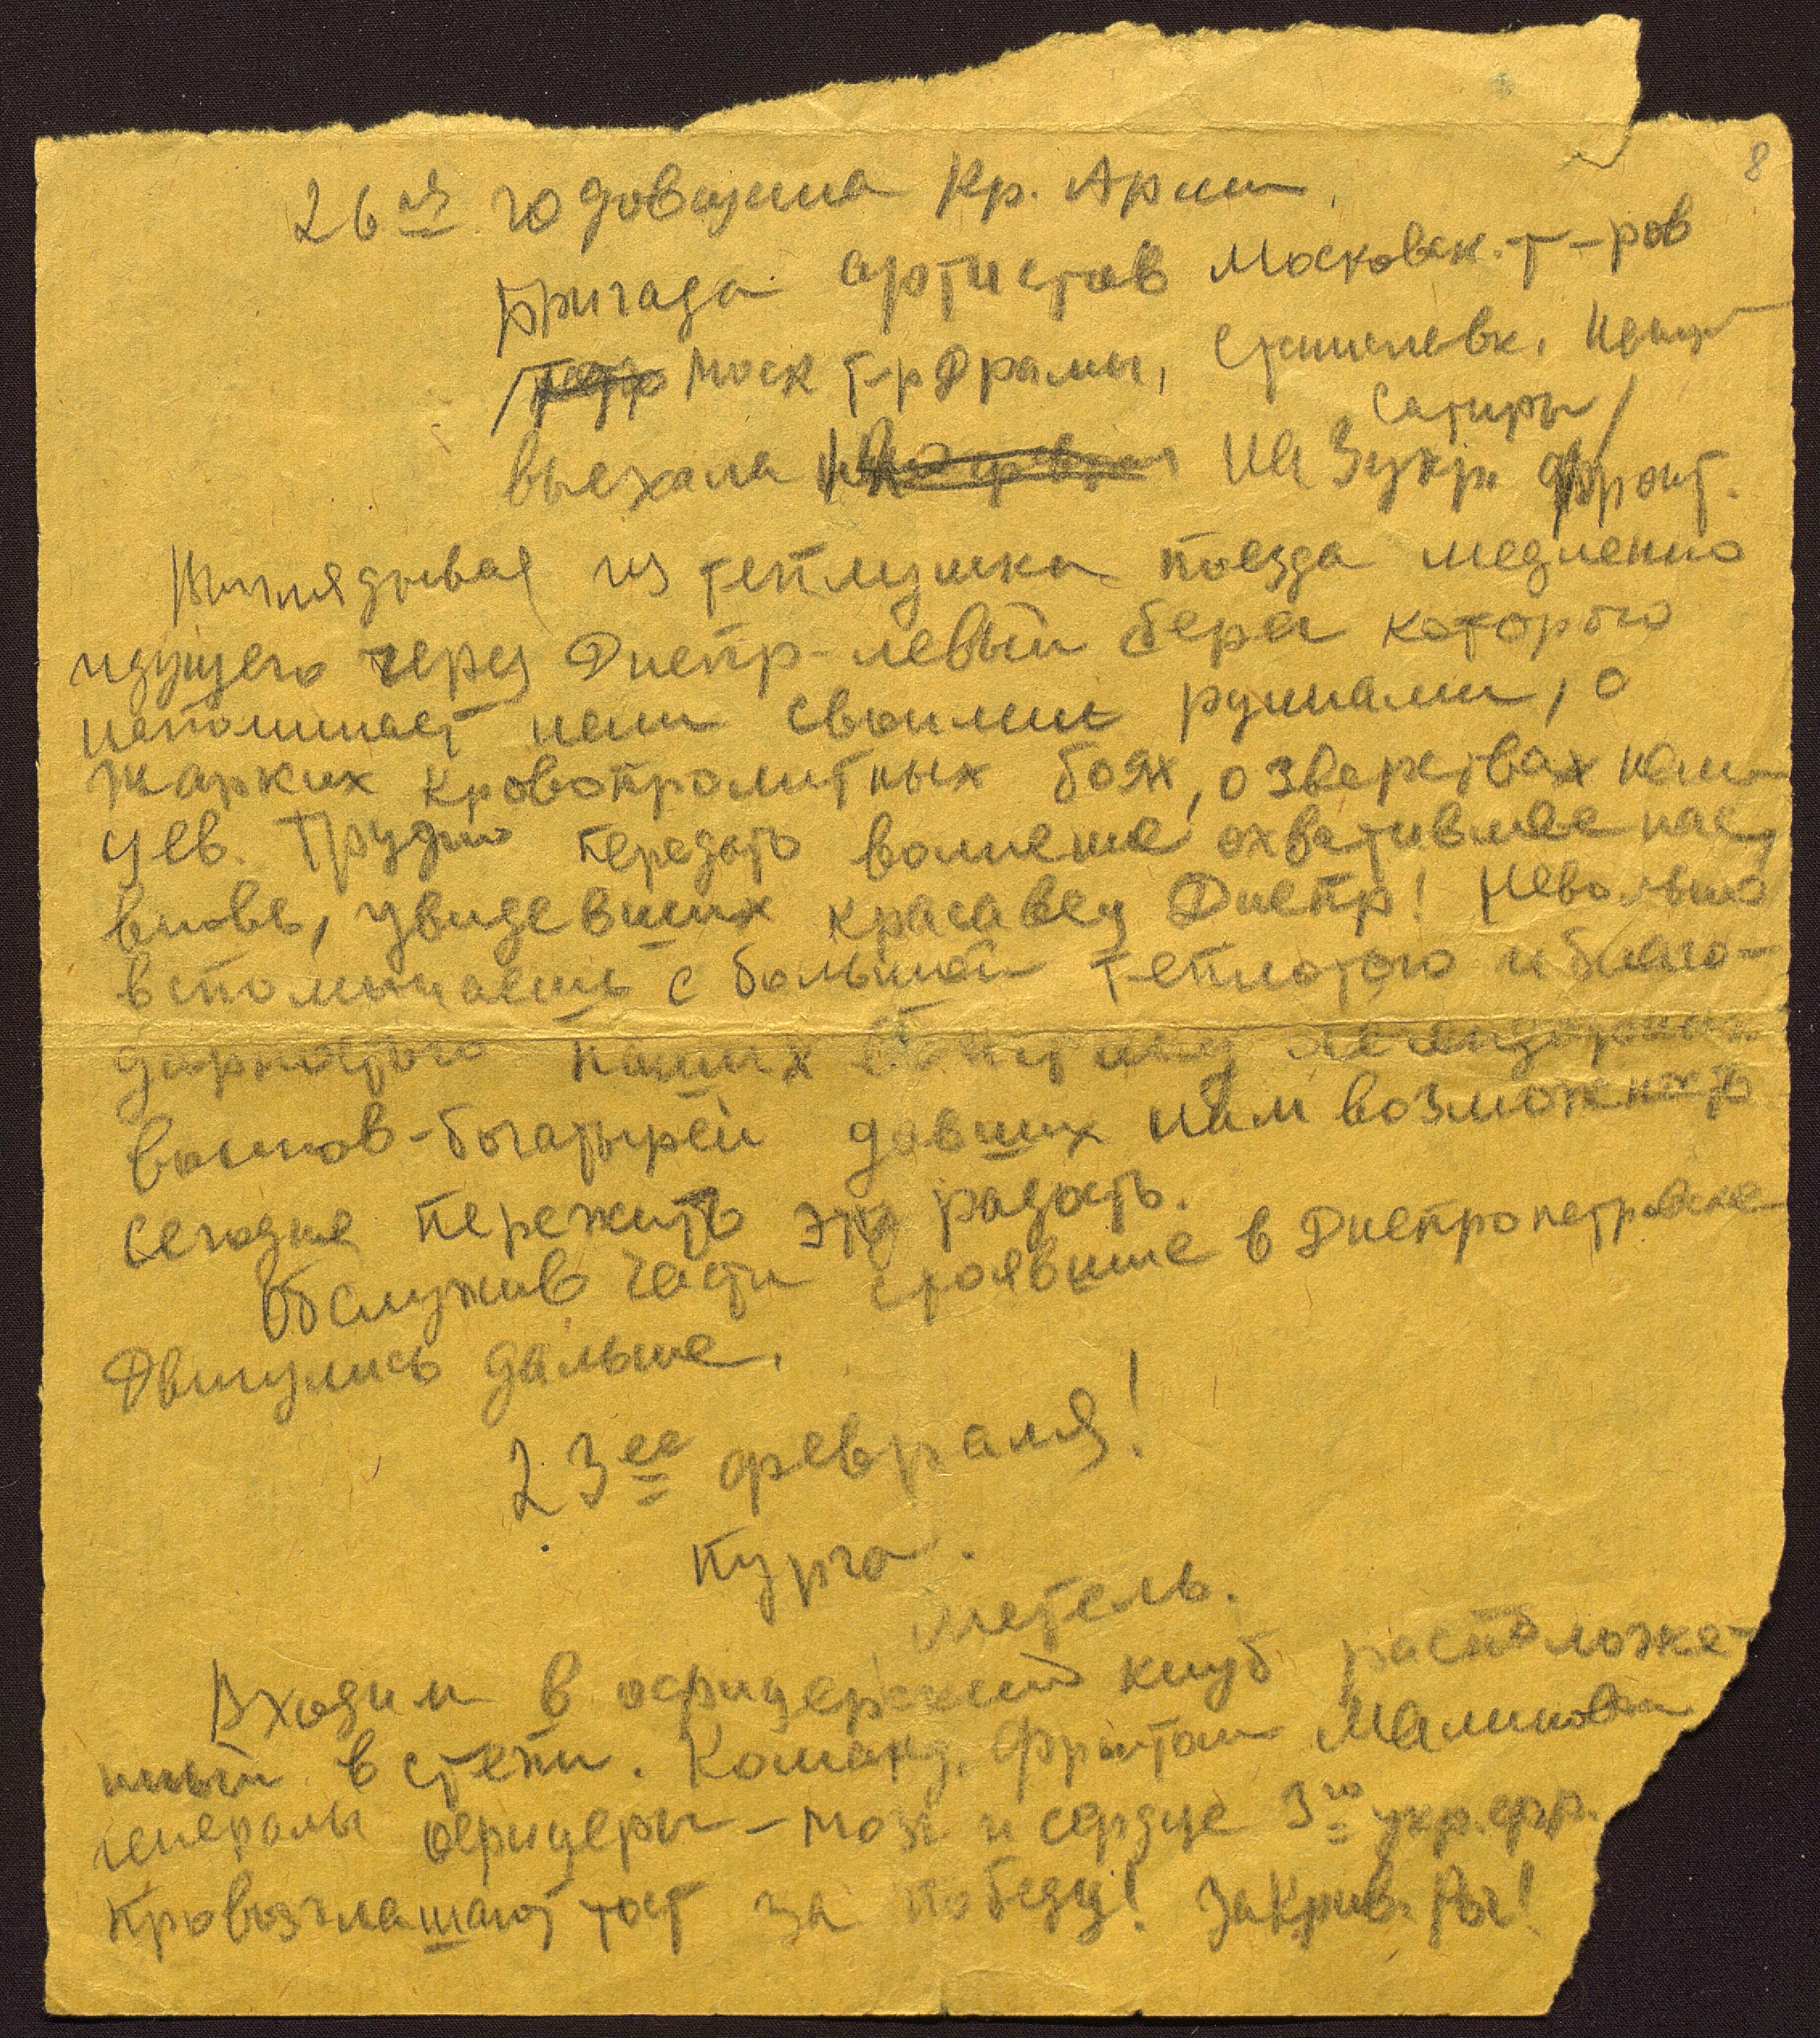 8
26ая годовщина Кр. Армии.
Бригада артистов Московск. т-ров
/ Моск т-р Драмы, Станиславк.
Сатиры/
выехала на 3 укр. фронт.
Выглядывая из теплушки поезда медленно
идущего через Днепр - левый берег которого
напоминает нам своими руинами, о
жарких кровопролитных боях, о зверствах нем-
цев. Трудно передать волнение охватившее нас,
вновь, увидевших красавец Днепр! Невольно
вспоминаешь с большой теплотою и благо-
дарностью наших легендарных
воинов-богатырей давших нам возможность
сегодня пережить эту радость.
Обслужив части стоявшие в Днепропетровске
Двинулись дальше.
23ее февраля!
Пурга.
Метель.
Входим в офицерский клуб расположе-
нный в степи. Команд. фронтом Малиновский
генералы офицеры - мозг и сердце 3го укр. фр.
провозглашают тост за победу! За Крив. Рог!